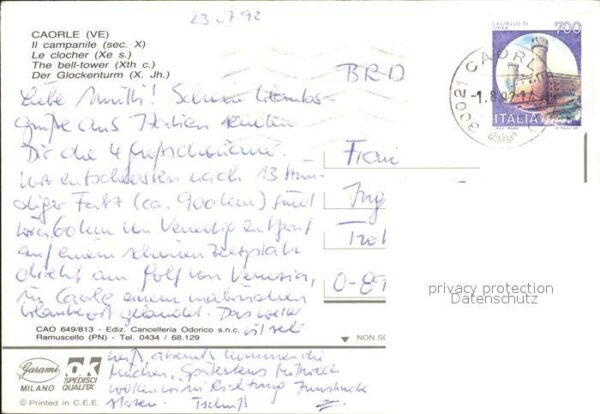 23.7.92
CAORLE (VE)
Il campanile (sec. X)
Le clocher (Xe s.)
The bell-tower (Xth c.)
Der Glockenturm (X. Jh.)
CASTELLO DI
700
30021 CAORLE
-1.8.92
ITALIA
BRD
Liebe Mutti! Schöne Urlaubs-
grüße aus Italien senden
Dir die 4
Wir nach 13 stün-
diger Fahrt (ca. 900 km) sind
60 km von Venedig entfernt
auf einem schönen Zeltplatz
direkt am Golf von Venezia,
in Caorle einem malerischen
Urlaubsort gelandet. Das Wetter
ist sehr
heiß, abends kommen die
Mücken. Spätestens Mittwoch
wollen wir in Richtung Innsbruck
Tschüß
Frau
Ing
O-89
privacy protection
Datenschutz
CAO 649/813 - Ediz. Cancelleria Odorico s.n.c.
Ramuscello (PN) - Tel. 0434 / 68.129
NON SC
Garami
MILANO
OK
SPEDISCI
QUALITA'
© Printed in C.E.E.